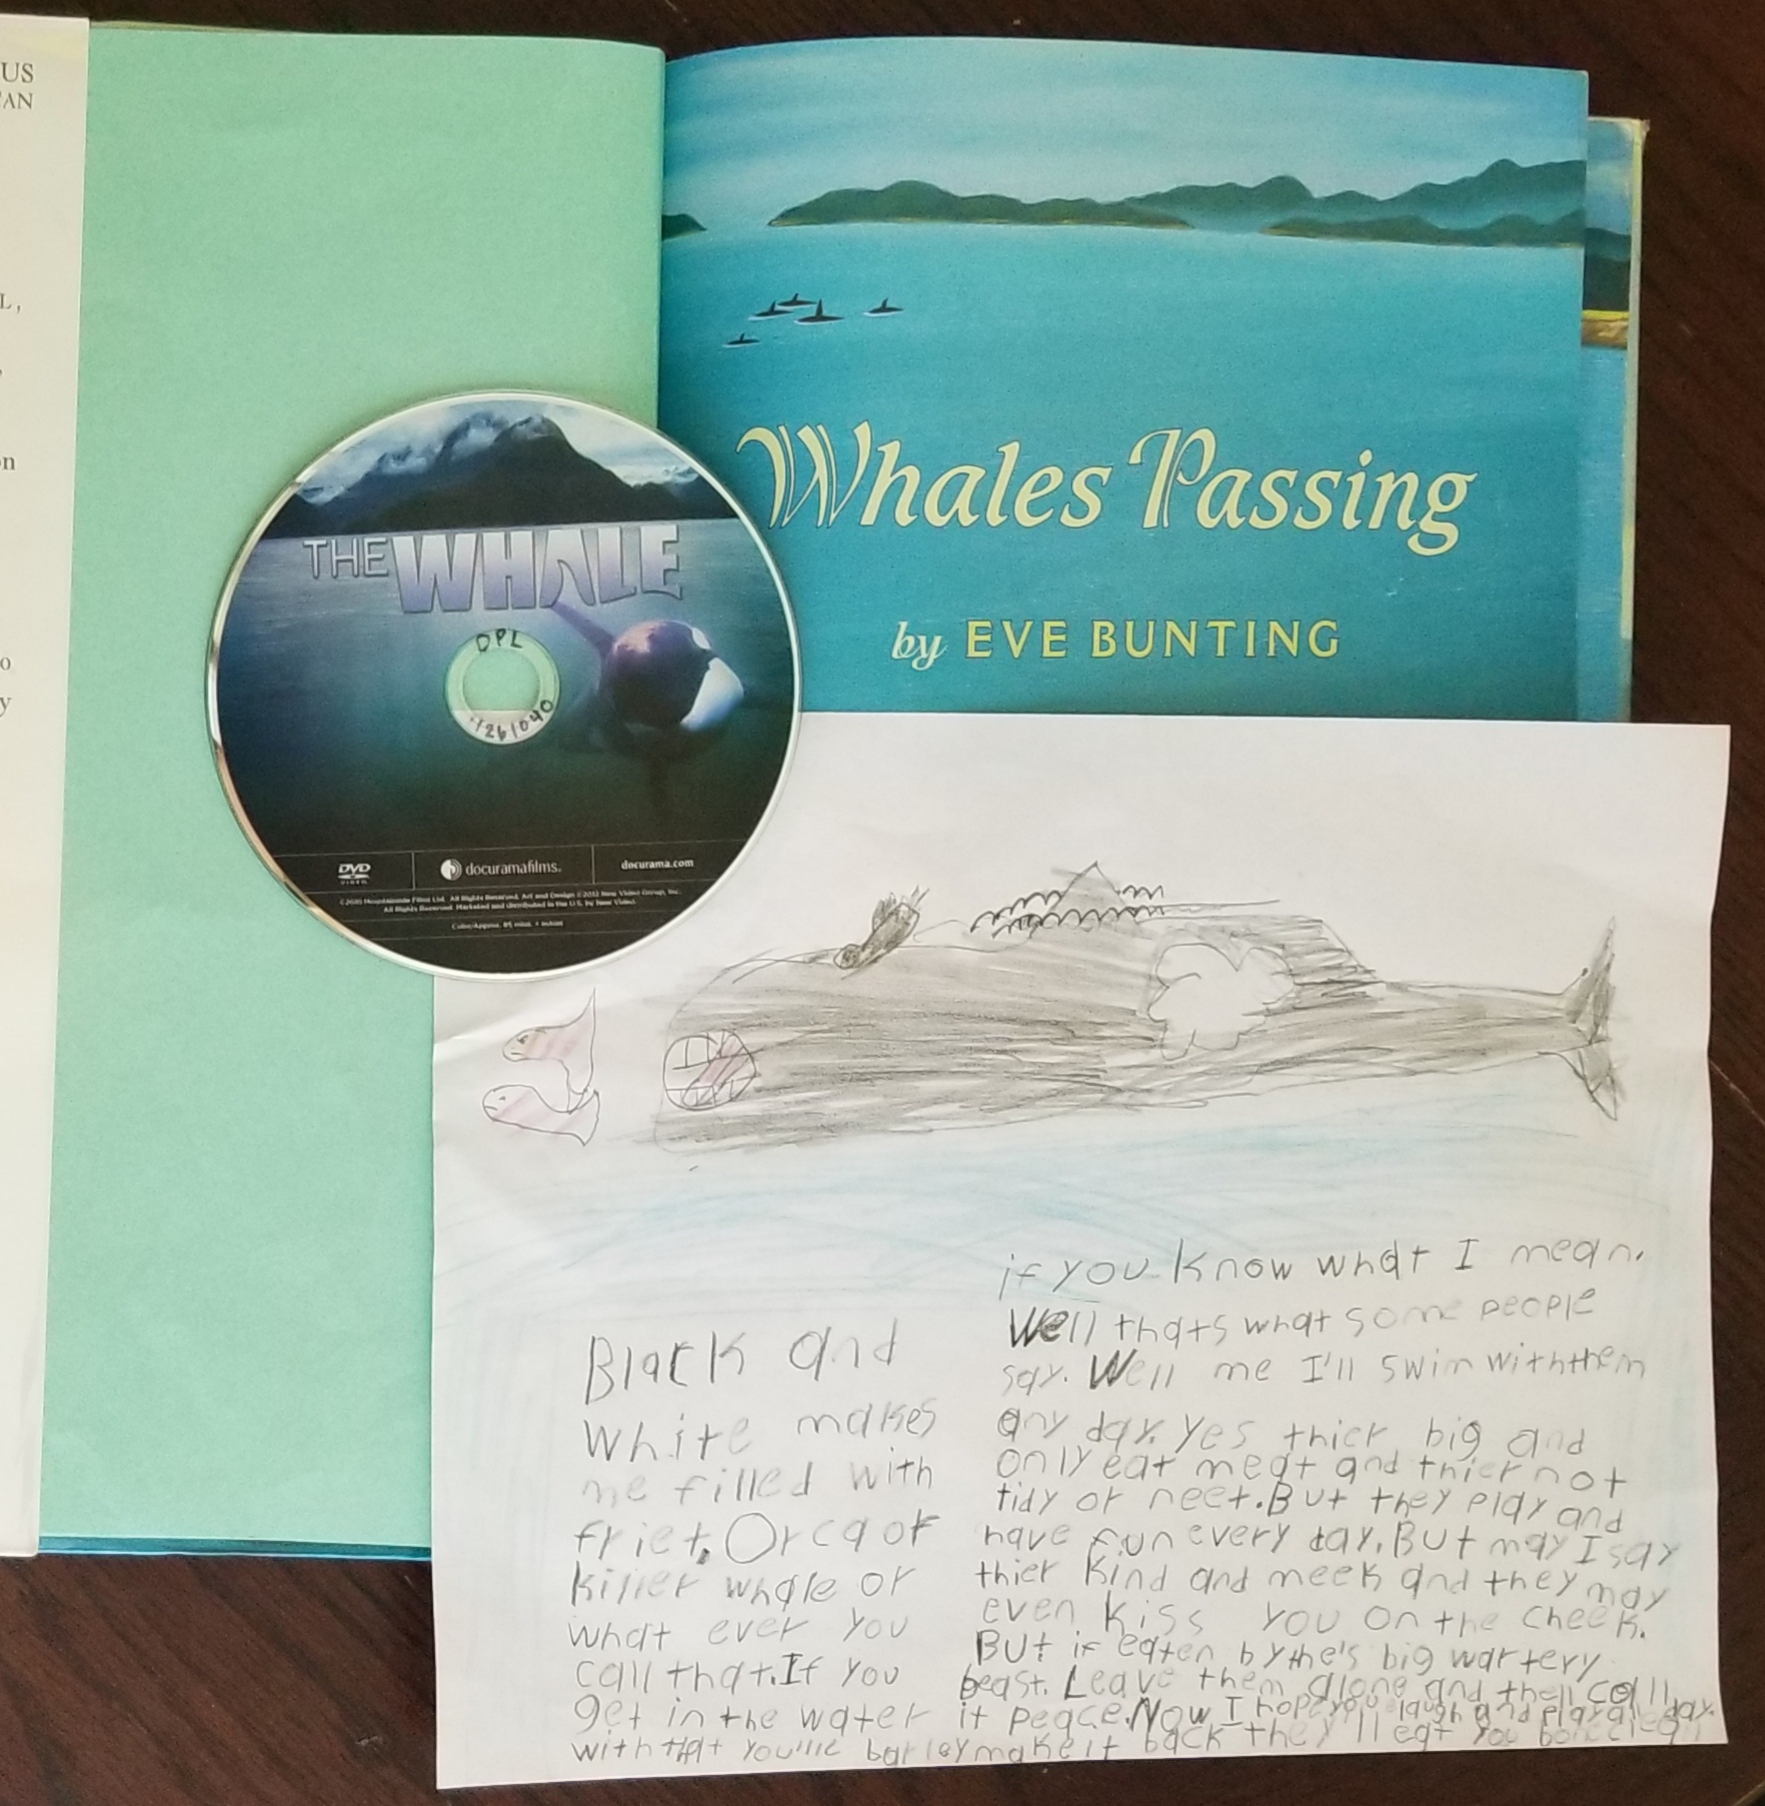 US
AN
L,
on
o
y
Whales Passing
by EVE BUNTING
THE WHALE
DPL
1261040
DVD
VIDEO
docuramafilms.
docurama.com
All Rights Reserved. Marketed and distributed in the U.S. by New Video.
Black and
White makes
me filled with
friet. Orca or
killer whale or
what ever you
call that. If you
get in the water
with that you'lle barley make it back they'll eat you
if you know what I mean.
Well thats what some people
say. Well me I'll swim with them
any day. Yes thier big and
only eat meat and thier not
tidy or neet. But they play and
have fun every day. But may I say
thier kind and meek and they may
even kiss you on the cheek.
But if eaten by the's big wartery
beast. Leave them alone and then call
it peace. Now I hope you laugh and play all day.